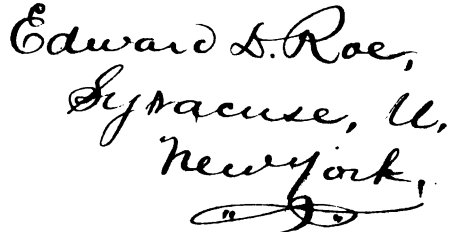 Edward D. Roe,
Syracuse, U.
New York,